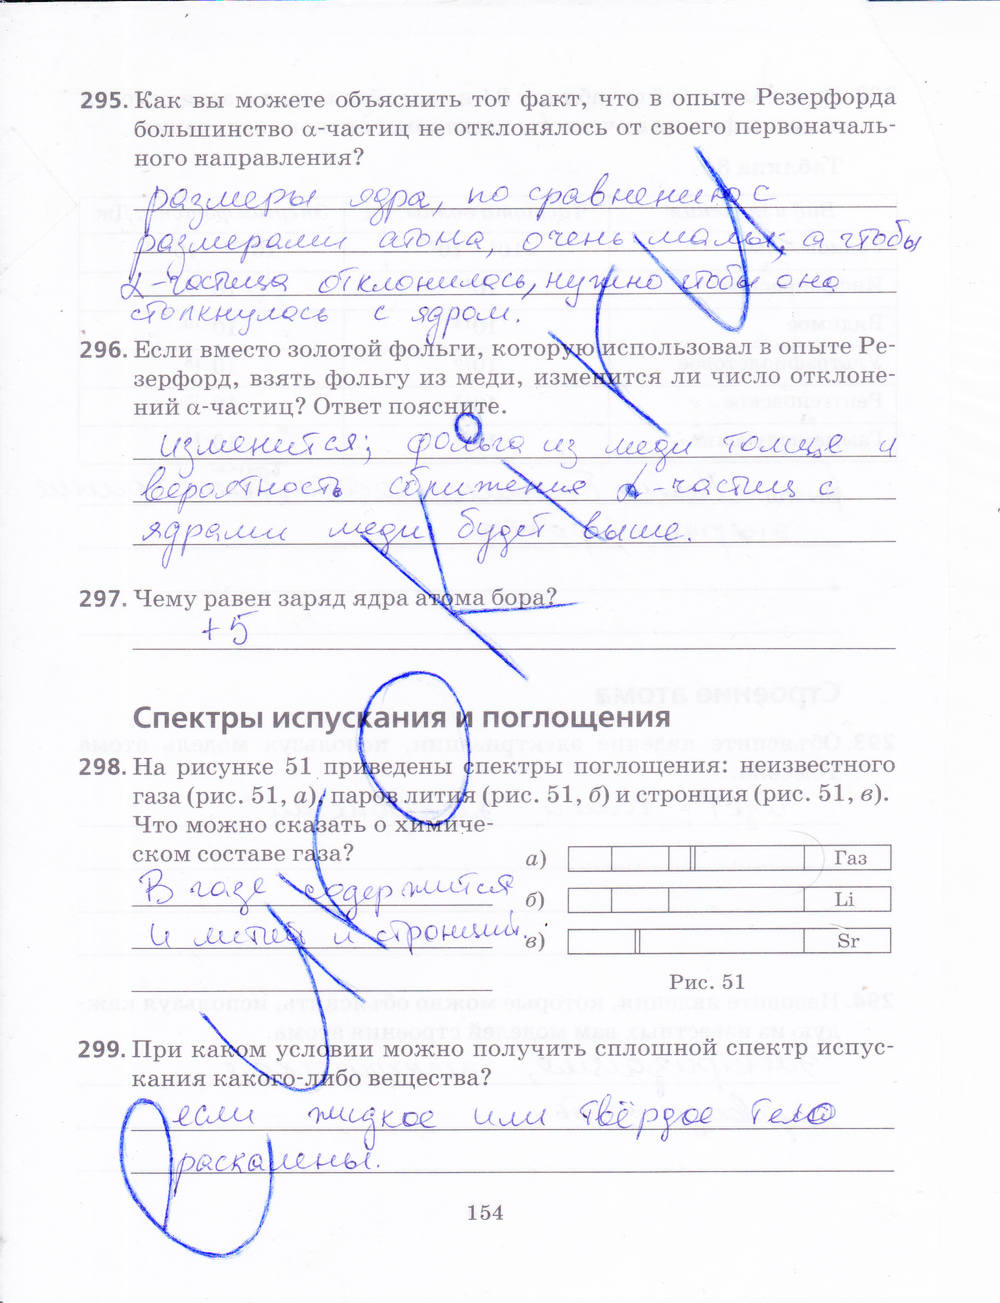 295. Как вы можете объяснить тот факт, что в опыте Резерфорда
большинство α-частиц не отклонялось от своего первоначаль-
ного направления?
размеры ядра, по сравнению с
размерами атома, очень малы, а чтобы
α-частица отклонилась, нужно чтобы она
столкнулась с ядром.
296. Если вместо золотой фольги, которую использовал в опыте Ре-
зерфорд, взять фольгу из меди, изменится ли число отклоне-
ний α-частиц? Ответ поясните.
изменится; фольга из меди толще и
вероятность сближения α-частиц с
ядрами меди будет выше.
297. Чему равен заряд ядра атома бора?
+5
Спектры испускания и поглощения
298. На рисунке 51 приведены спектры поглощения: неизвестного
газа (рис. 51, а), паров лития (рис. 51, б) и стронция (рис. 51, в).
Что можно сказать о химиче-
ском составе газа?
а) Газ
В газе содержится
б) Li
и литий и стронций.
в) Sr
Рис. 51
299. При каком условии можно получить сплошной спектр испус-
кания какого-либо вещества?
если жидкое или твёрдое тело
раскалены.
154